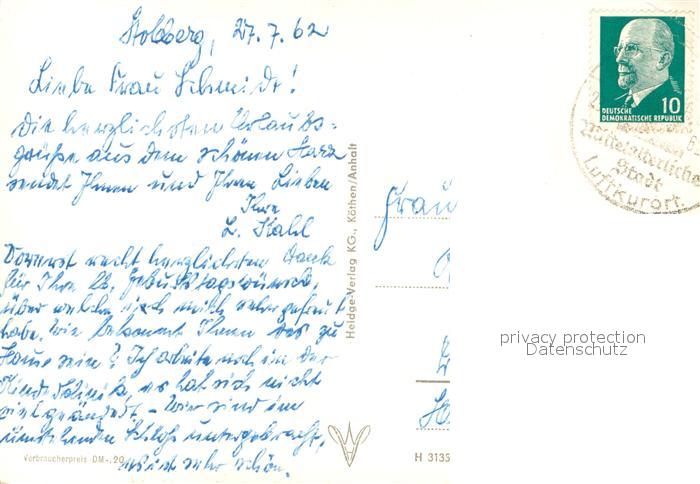 Stolberg, 27.7.62
Liebe Frau Schmidt!
Die herzlichsten Urlaubs-
grüße aus dem schönen Harz
sendet Ihnen und Ihren Lieben
Ihre
L. Stahl
Vorerst recht herzlichsten Dank
für Ihre lb. Geburtstagswünsche,
über welche ich mich sehr gefreut
habe. Wie bekommt Ihnen das zu
Hause sein? Ich arbeite noch in der
Kinderklinik, es hat sich nicht
viel geändert. - Wir sind im
umstehenden Schloß untergebracht,
es ist sehr schön.
Verbraucherpreis DM -,20
Heldge-Verlag KG., Köthen/Anhalt
Frau
H 3135
10
DEUTSCHE
DEMOKRATISCHE REPUBLIK
Mittelalterliche
Stadt
Luftkurort
privacy protection
Datenschutz